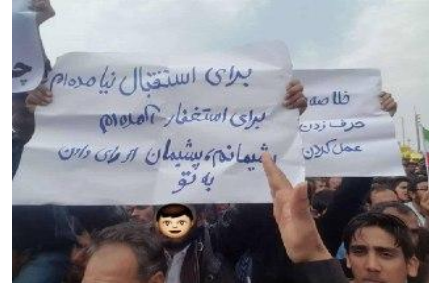 برای استقبال نیامده‌ام
برای استغفار آمده‌ام
پشیمانم، پشیمان از رای دادن
به تو
خلاصه
حرف زدن
عمل کردن